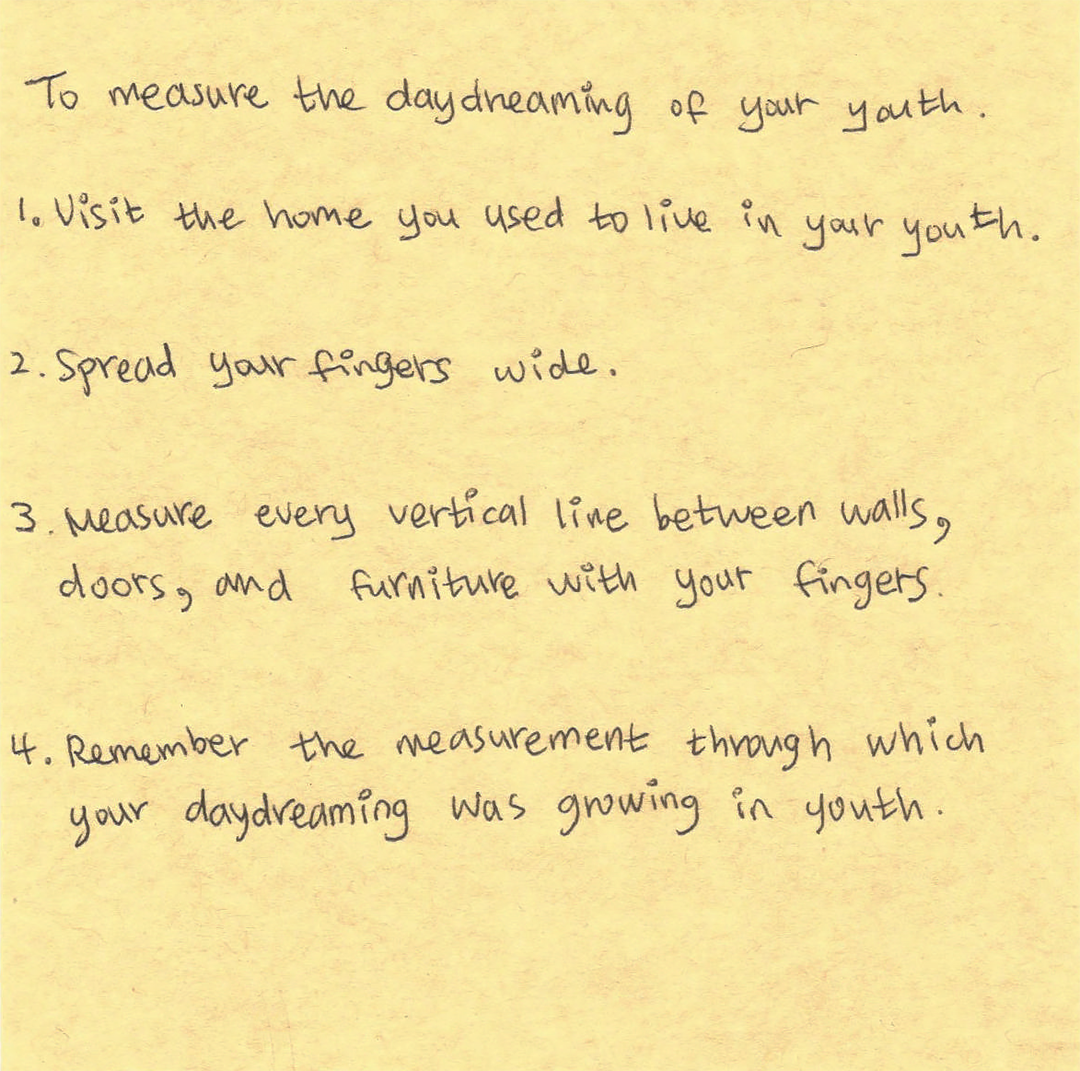 To measure the daydreaming of your youth.
1. Visit the home you used to live in your youth.
2. Spread your fingers wide.
3. Measure every vertical line between walls,
doors, and furniture with your fingers.
4. Remember the measurement through which
your daydreaming was growing in youth.